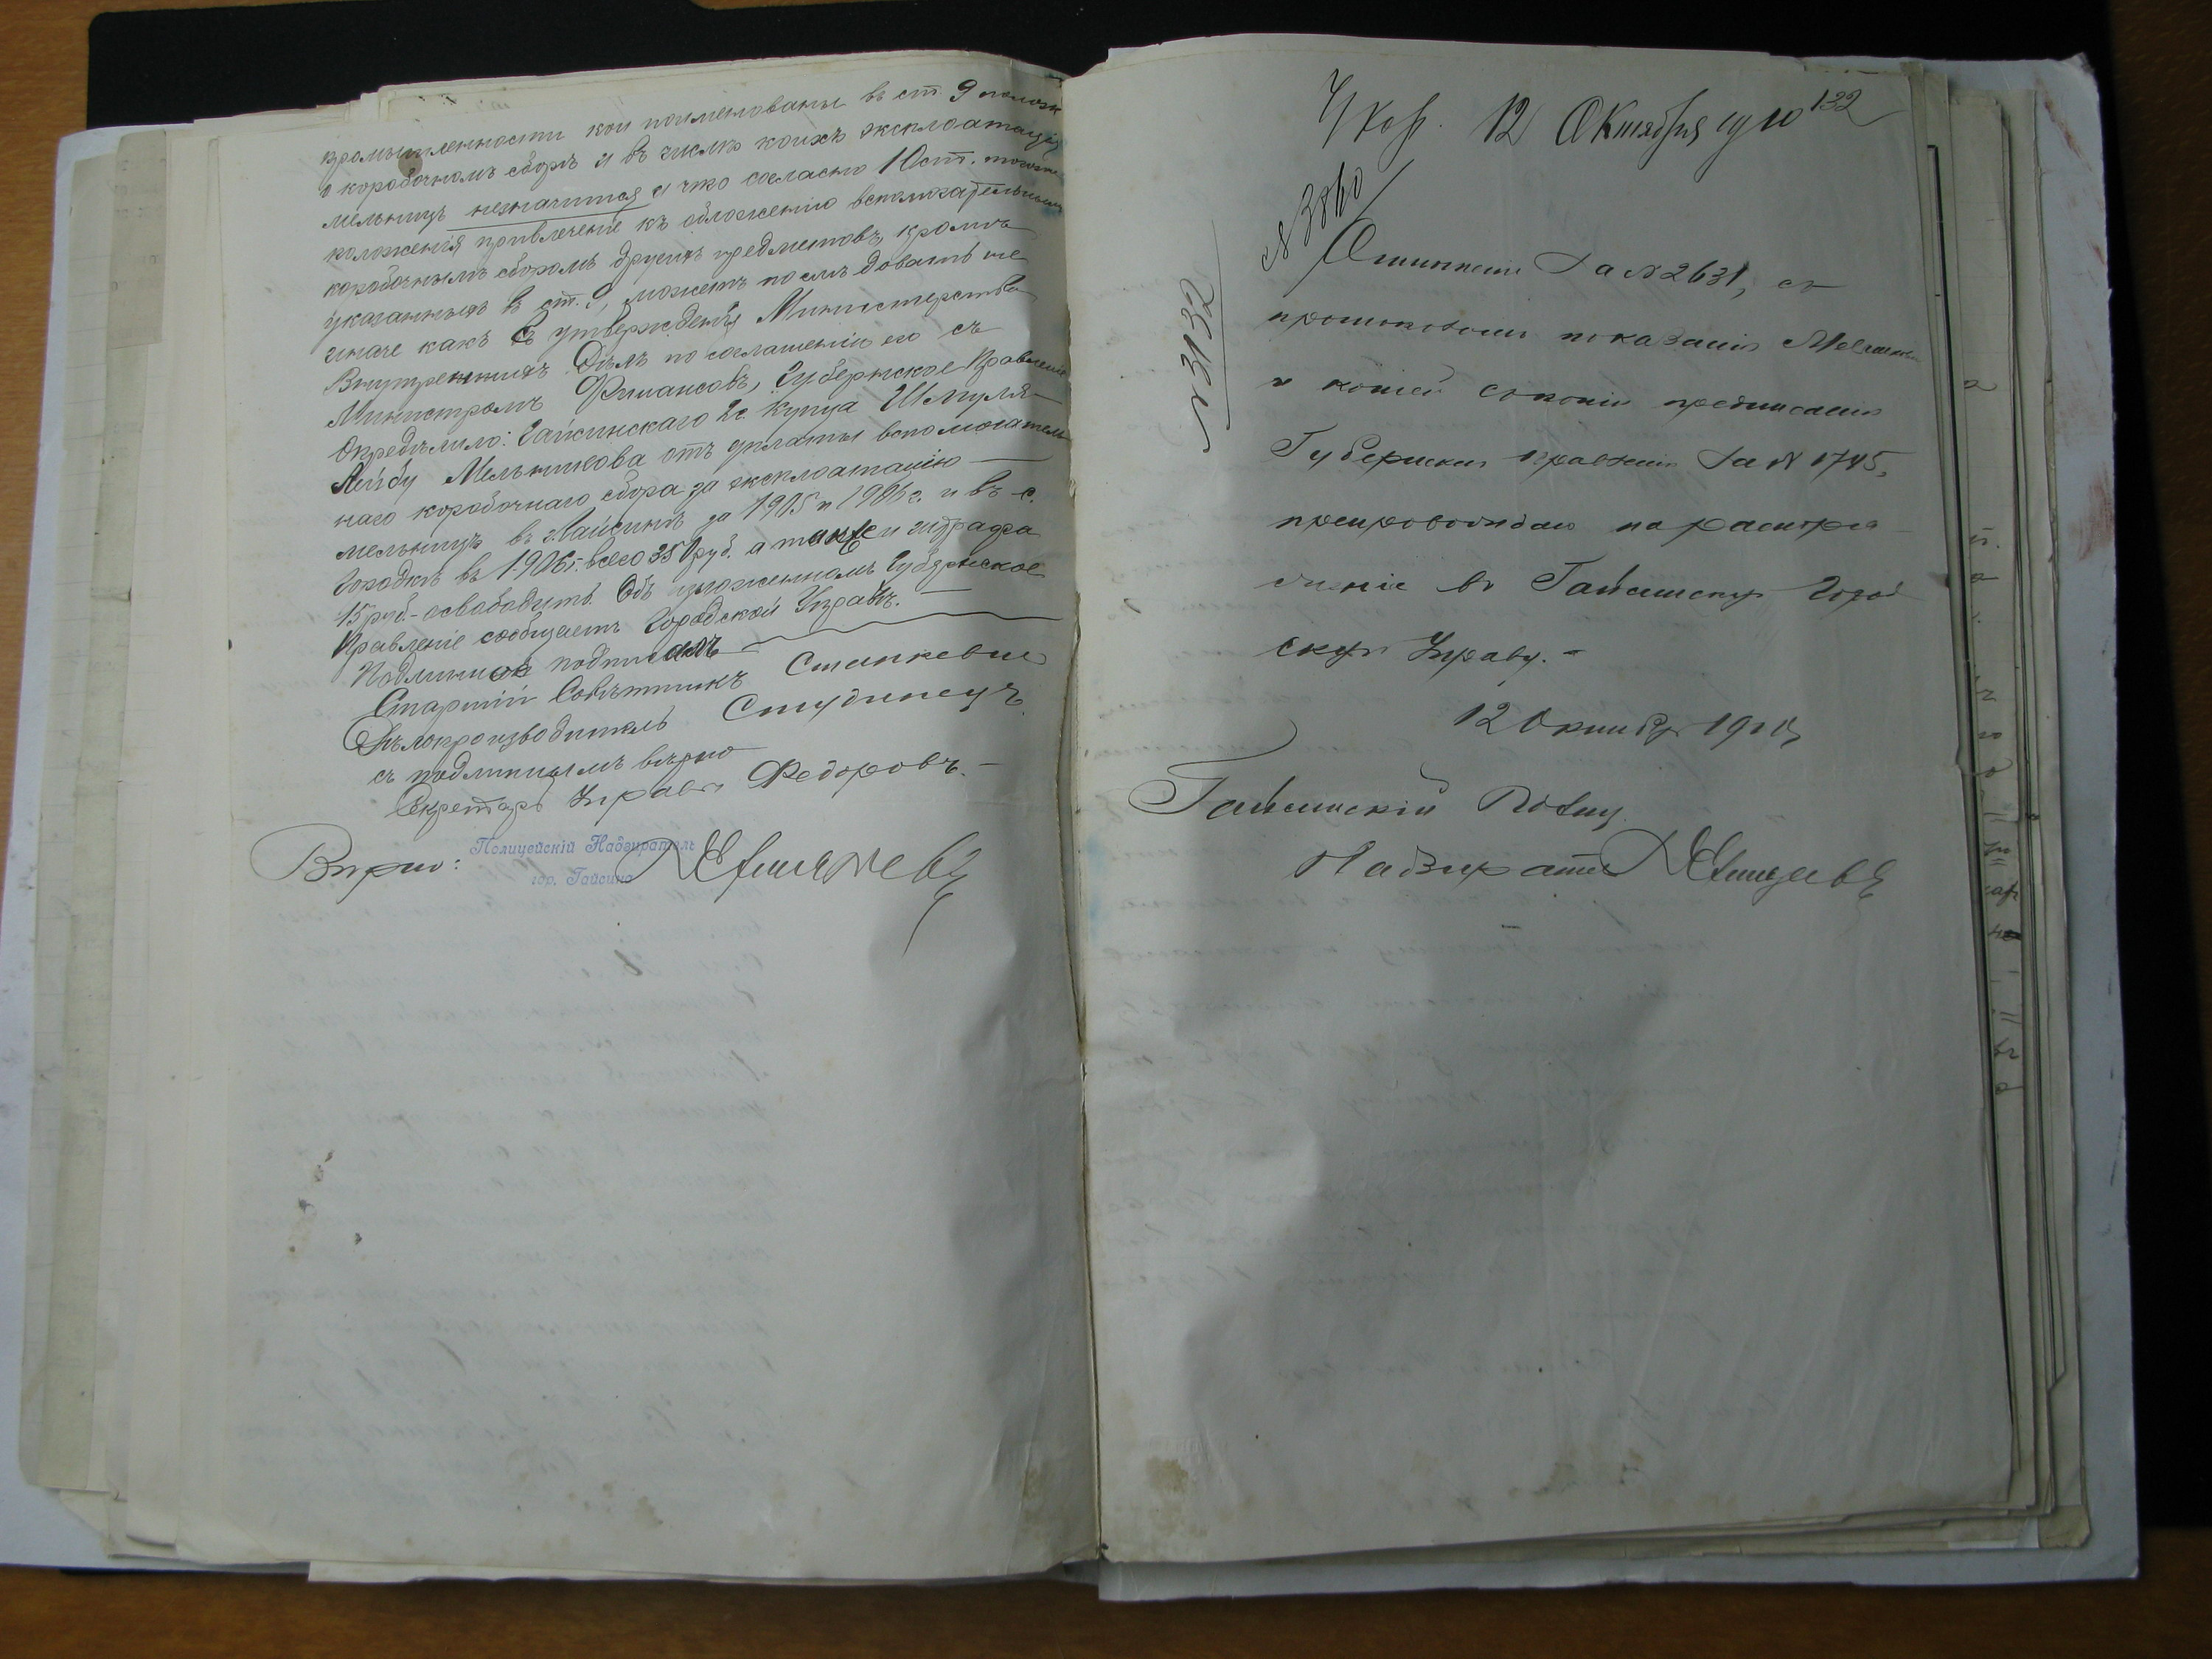 промышленности кои поименованы въ ст 9 полож
о коробочномъ сборѣ и въ числѣ коихъ эксплоатація
мельницъ незначится и что согласно 10 ст. тогоже
положенія привлеченіе къ обложенію вспомогательнымъ
коробочнымъ сборомъ другихъ предметовъ, кромѣ
указанныхъ въ ст. 9, можетъ послѣдовать не
иначе какъ съ утвержденія Министерства
Внутреннихъ Дѣлъ по соглашенію его съ
Министромъ Финансовъ, Губернское Правленіе
Опредѣлило: Гайсинскаго 2 г. купца Шмуля-
Лейбу Мельникова отъ уплаты вспомогатель
наго коробочнаго сбора за эксплоатацію
мельницъ въ г. Гайсинѣ за 1905 и 1906 г. и въ с.
Городкѣ въ 1906 г. всего 350 руб. а также и штрафа
15 руб. - освободить. Объ изложенномъ Губернское
Правленіе сообщаетъ Городской Управѣ.
Подлинное подписалъ
Старшій Совѣтникъ Станкевич
Дѣлопроизводитель Студинецъ.
съ подлиннымъ вѣрно
Секретарь Управы Федоровъ. -
Вѣрно:
Полицейскій Надзиратель
гор. Гайсина
132
12 Октября 1910
№ 3860
№ 3132
Отношеніе за № 2631, съ
протоколомъ показанія
и копіей съ копіи предписанія
Губернскаго правленія за № 1745,
препровождаю на распоря
женіе въ Гайсинскую Город
скую Управу. -
12 Октября 1910
Гайсинскій Полиц.
Надзиратель